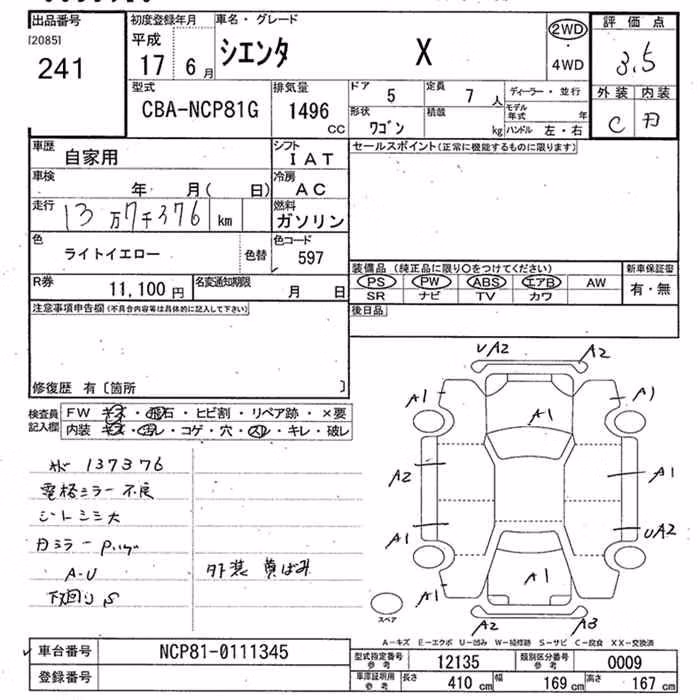 出品番号
[2085]
241
初度登録年月
平成
17 6月
車名・グレード
シエンタ X
2WD
・
4WD
評価点
3.5
外装 内装
C
型式
CBA-NCP81G
排気量
1496
CC
ドア 5
定員 7人
ディーラー・並行
形状
ワゴン
積載
kg
モデル年式 年
ハンドル 左・右
車歴
自家用
シフト
IAT
セールスポイント(正常に機能するものに限ります)
車検
年 月( 日)
冷房
AC
走行
13万7千376 km
燃料
ガソリン
色
ライトイエロー
色替
色コード
597
装備品 (純正品に限り○をつけてください)
新車保証書
PS PW ABS エアB AW
SR ナビ TV カワ
有・無
R券
11,100円
名変通知期限
月 日
後日品
注意事項申告欄(不具合内容等は具体的に記入して下さい)
修復歴 有〔箇所 〕
検査員記入欄
FW キズ・飛石・ヒビ割・リペア跡・×要
内装 キズ・汚レ・コゲ・穴・スレ・キレ・破レ
メーター 137376
電格ミラー不良
シートシミ大
A-U
下回りS
外装 黄ばみ
UA2 A2
A1 A1
A1
A2 A1
A1 UA2
A1
A1
A2 A3
スペア
A-キズ E-エクボ U-凹み W-補修跡 S-サビ C-腐食 XX-交換済
車台番号
NCP81-0111345
登録番号
型式指定番号
参考
12135
類別区分番号
参考
0009
車庫証明用
参考
長さ 410cm
幅 169cm
高さ 167cm